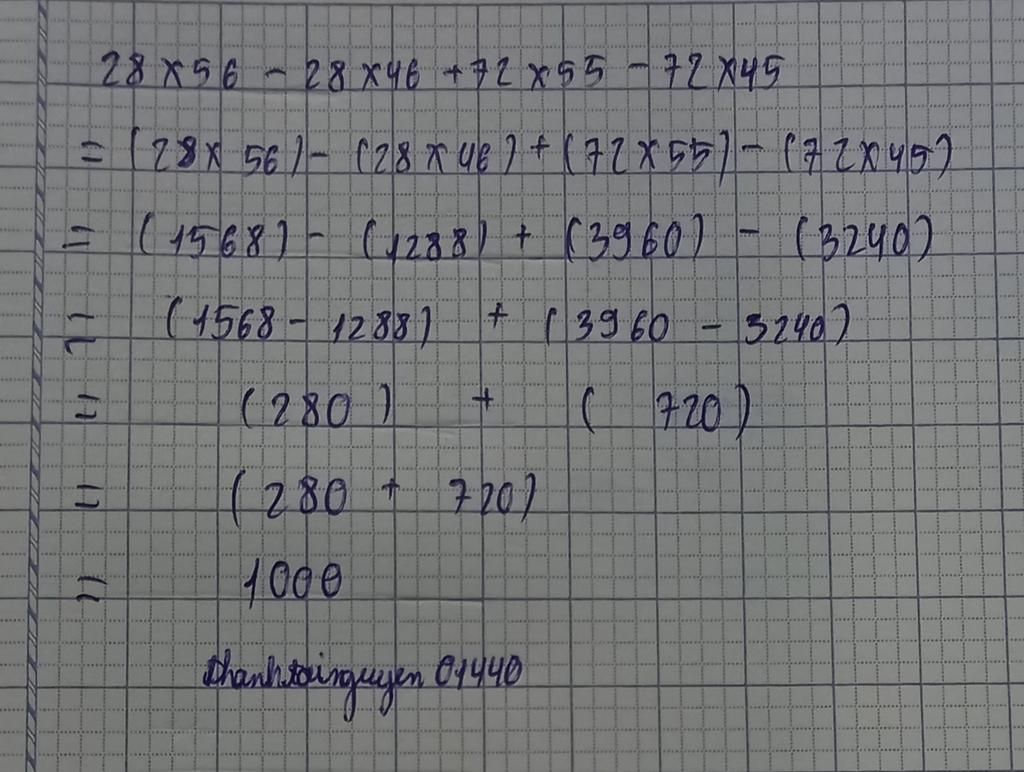 28 × 56 - 28 × 46 + 72 × 55 - 72 × 45
= (28 × 56) - (28 × 46) + (72 × 55) - (72 × 45)
= (1568) - (1288) + (3960) - (3240)
= (1568 - 1288) + (3960 - 3240)
= (280) + ( 720)
= (280 + 720)
= 1000
thanhtainguyen 01440